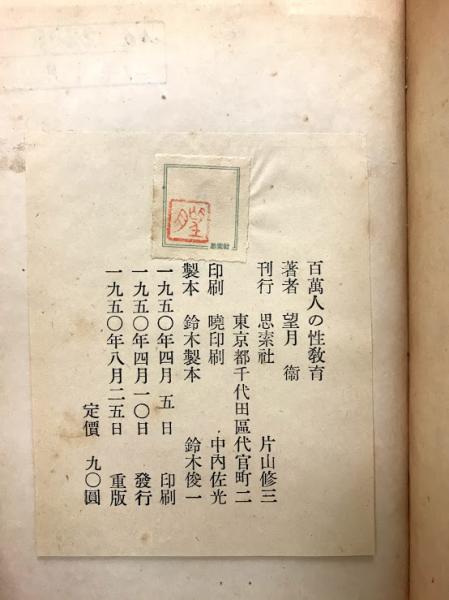 百萬人の性敎育
著者 望月 衞
刊行 思索社 片山修三
東京都千代田區代官町二
印刷 曉印刷 中內佐光
製本 鈴木製本 鈴木俊一
一九五〇年四月 五 日 印刷
一九五〇年四月一〇日 發行
一九五〇年八月二五日 重版
定價 九〇圓
思索社